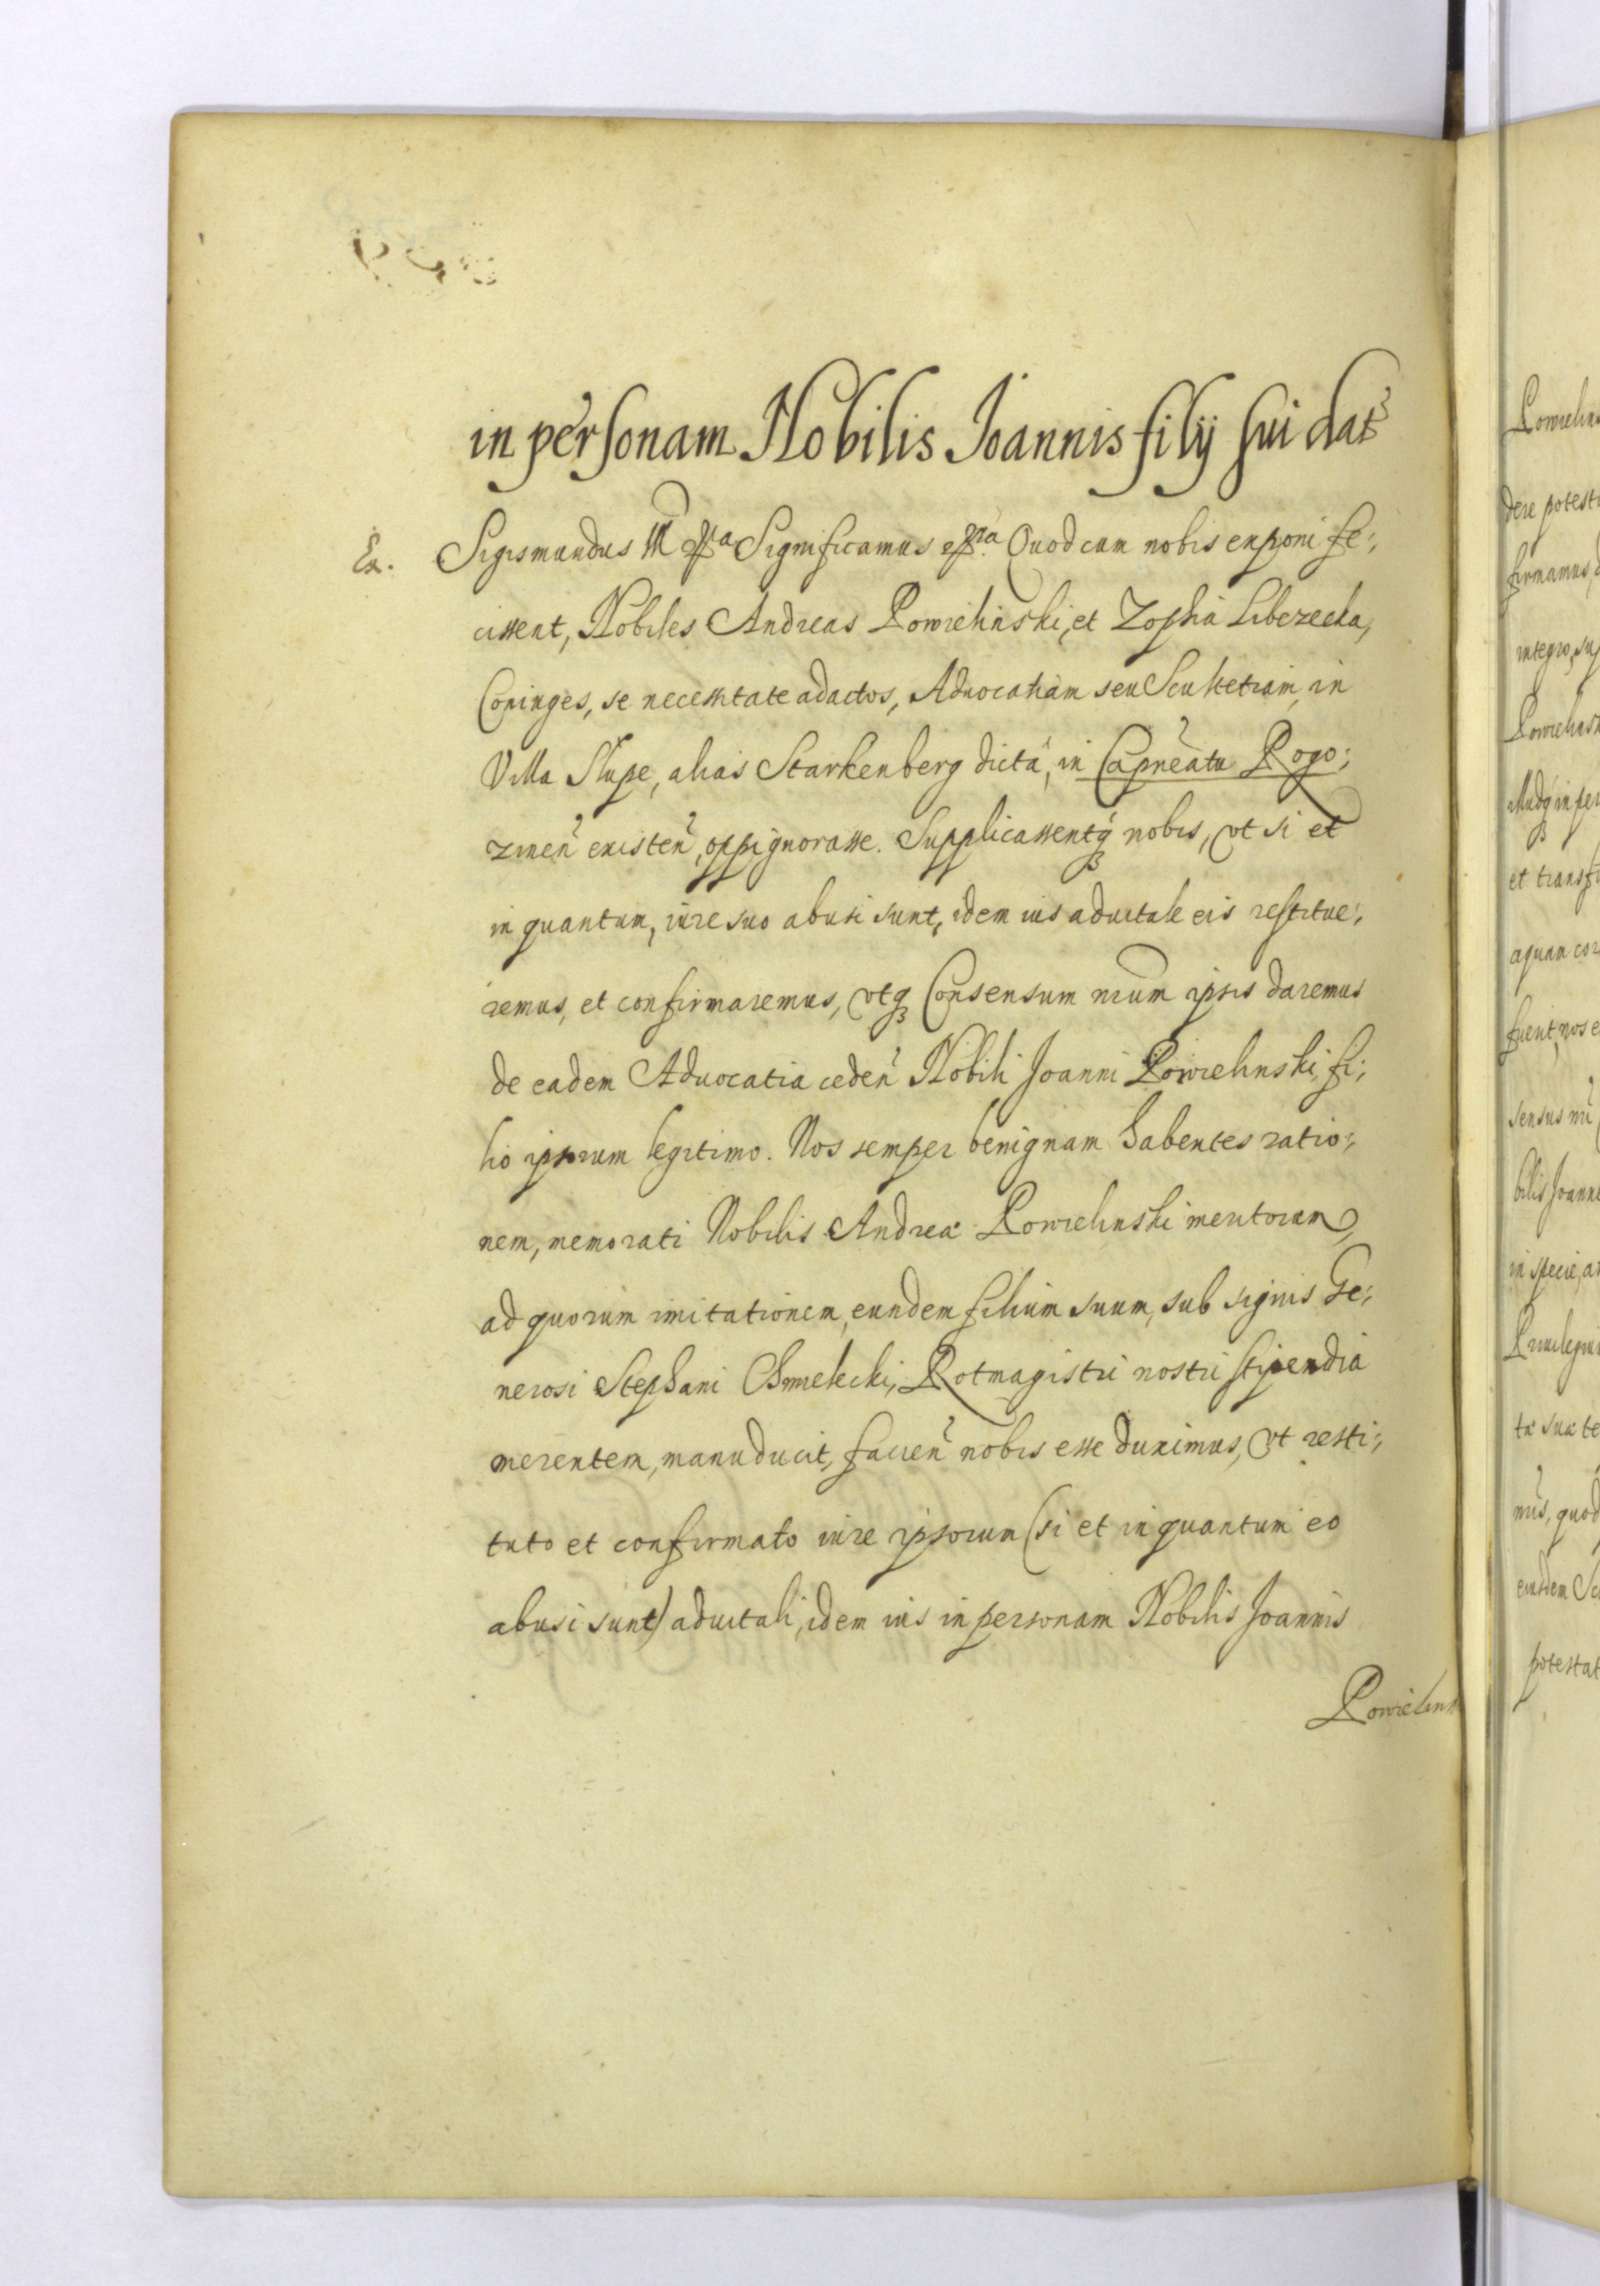 in personam Nobilis Joannis filij sui dat
Ex. Sigismundus III etc. Significamus etc. Quod cum nobis exponi fe:
cissent, Nobiles Andreas Powielinski, et Zophia Libczecka,
Coniuges, se necessitate adactos, Aduocatiam seu Scultetiam, in
Villa Slupe, alias Starkenberg dictá, in Capneatu Rogo:
zinen existen, oppignorasse. Supplicassentq nobis, vt si et
in quantum, iure suo abusi sunt, idem ius aduitale eis restitue:
remus, et confirmaremus, vtq Consensum nrum ipsis daremus
de eadem Aduocatia ceden Nobili Joanni Powielinski, fi:
lio ipsorum legitimo. Nos semper benignam habentes ratio:
nem, memorati Nobilis Andreæ Powielinski meritorum,
ad quorum imitationem, eundem filium suum, sub signis Ge:
nerosi Stephani Chmielecki, Rotmagistri nostri stipendia
merentem, manuducit, facien nobis esse duximus, vt resti:
tuto et confirmato iure ipsorum (si et in quantum eo
abusi sunt) aduitali, idem ius in personam Nobilis Joannis
Powielins